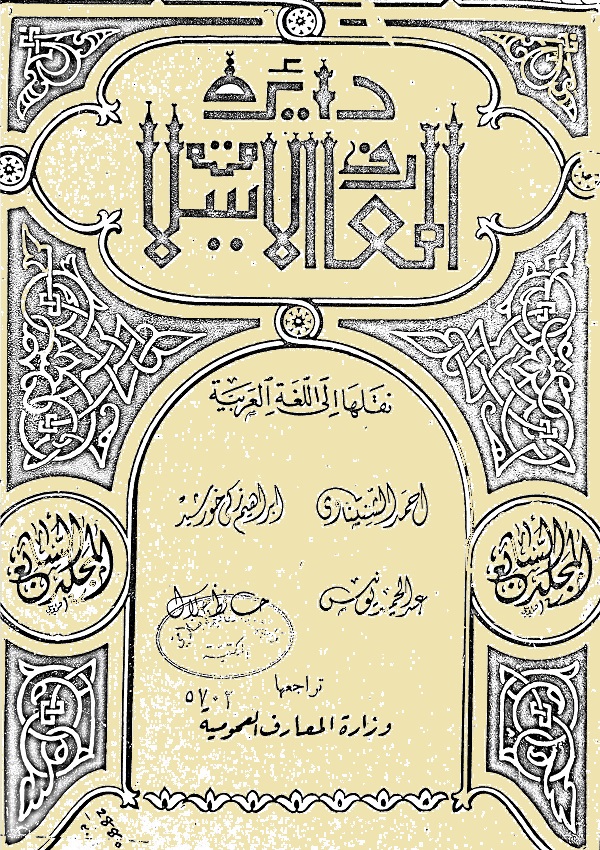 دائرة
المعارف الإسلامية
نقلها إلى اللغة العربية
أحمد الشنتناوى إبراهيم زكى خورشيد
عبد الحميد يونس حافظ جلال
المجلد السابع
المجلد السابع
تراجعها
٥٧٠٢
وزارة المعارف العمومية